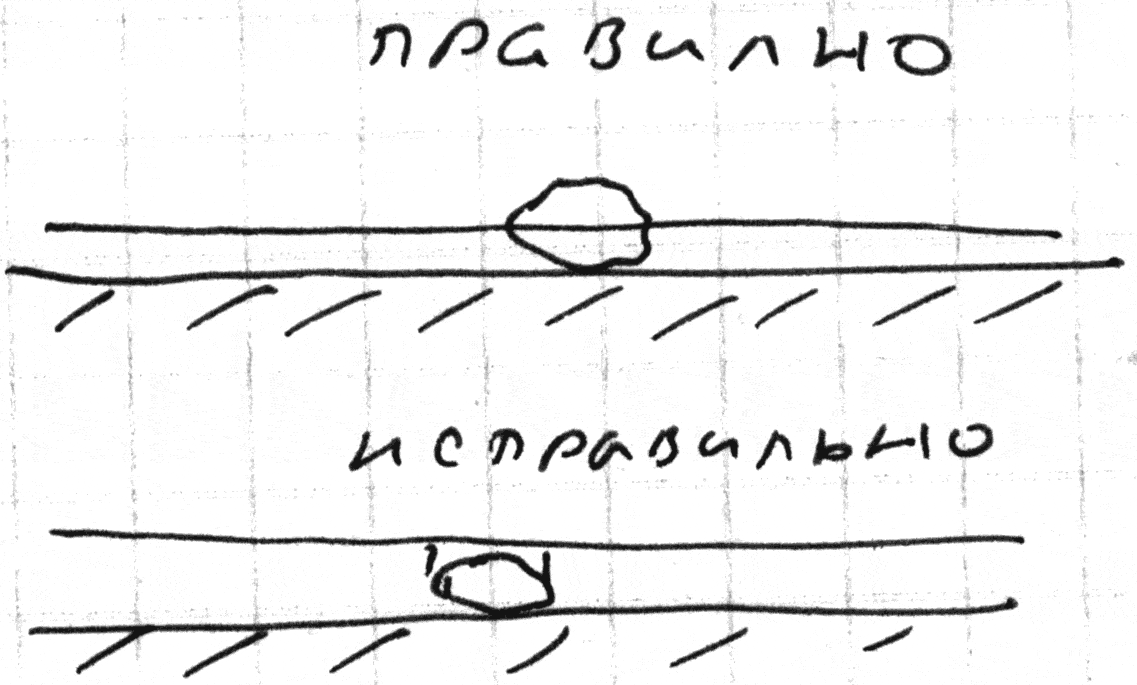 правилно
исправильно